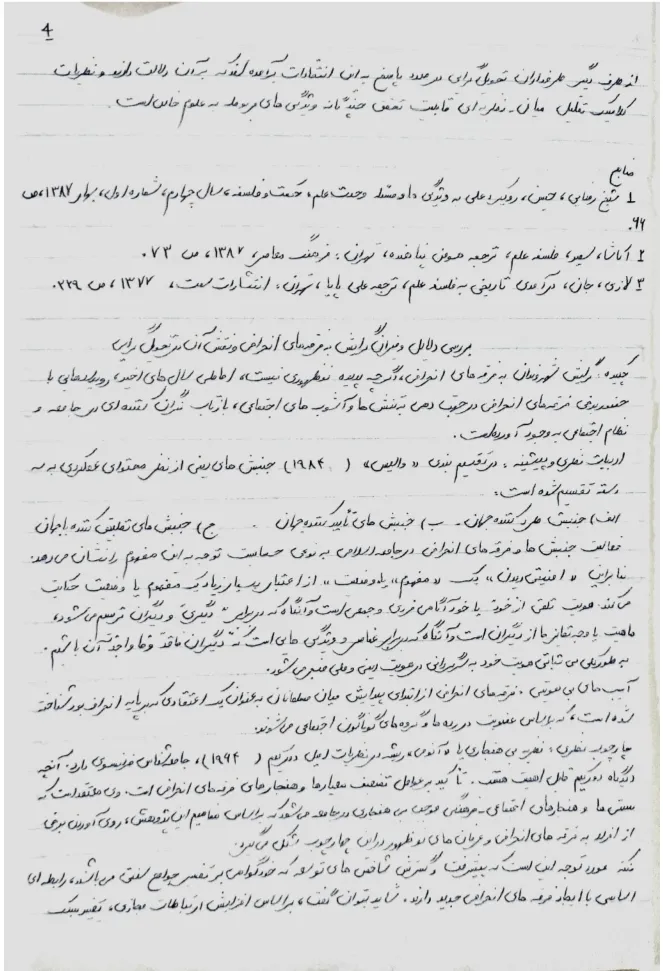 4
از طرف دیگر طرفداران تحویل گرایی در صدد پاسخ به این انتقادات برآمده اند که به آن دلالت دارند و نظریات
کلاسیک تقلیل میان نظریه ای قابلیت تحقق چندگانه ویژگی های مربوط به علوم خاص است.
منابع
1 شیخ رضایی، حسین، رویکرد علی به ویژگی ها و مسئله وحدت علم، حکمت و فلسفه، سال چهارم، شماره اول، بهار ۱۳۸۷، ص
۹۶.
2 اکاشا، سمیر، فلسفه علم، ترجمه هومن پناهنده، تهران: فرهنگ معاصر، ۱۳۸۷، ص ۷۳.
3 لازی، جان، درآمدی تاریخی به فلسفه علم، ترجمه علی پایا، تهران: انتشارات سمت، ۱۳۷۷، ص ۲۲۹.
بررسی دلایل و میزان گرایش به فرقه های انحرافی و نقش آن در تحویل گرایی
چکیده: گرایش شهروندان به فرقه های انحرافی، اگرچه پدیده نوظهوری نیست، اما طی سال های اخیر، رویدادهایی با
حضور برخی فرقه های انحرافی در جهت دهی به تنش ها و آشوب های اجتماعی، بازتاب نگران کننده ای در جامعه و
نظام اجتماعی به وجود آورده است.
ادبیات نظری و پیشینه: در تقسیم بندی «والیس» (۱۹۸۴) جنبش های دینی از نظر محتوای عملکردی به سه
دسته تقسیم شده است:
الف) جنبش طرد کننده جهان - ب) جنبش های تأیید کننده جهان - ج) جنبش های تطبیق کننده با جهان
فعالیت جنبش ها و فرقه های انحرافی در جامعه اسلامی به نوعی حساسیت توجه به این مفهوم را نشان می دهد.
بنابراین «امنیتی دیدن» یک «مفهوم» یا «وضعیت» از اعتبار بسیار زیاد یک مفهوم یا وضعیت حکایت
می کند. هویت تلقی از خود یا خودآگاهی فردی و جمعی است و آنگاه که در برابر "دیگری" و دیگران ترسیم می شود،
ماهیت یا وجه تمایز ما از دیگران است و آنگاه که در برابر عناصر و ویژگی هایی است که "دیگران فاقد و ما واجد" آن باشیم.
به طور کلی بی ثباتی هویت خود به سرگردانی در هویت دینی و ملی منجر می شود.
آسیب های بی هویتی: فرقه های انحرافی از ابتدای پیدایش میان مسلمانان به عنوان یک اعتقادی که بر پایه انحراف بود شناخته
شده است، که بر اساس عضویت در رده ها و گروه های گوناگون اجتماعی می شوند.
چارچوب نظری: نظریه بی هنجاری یا «آنومی» ریشه در نظریات امیل دورکیم (۱۹۹۴)، جامعه شناس فرانسوی دارد. آنچه
دیدگاه دورکیم حائز اهمیت هست. تأکید بر عوامل تضعیف معیارها و هنجارهای فرقه های انحرافی است. وی معتقد است که
سستی ها و هنجارهای اجتماعی - فرهنگی موجب بی هنجاری در جامعه می شود که بر اساس مفاهیم این پژوهش، روی آوردن برخی
از افراد به فرقه های انحرافی و عرفان های نوظهور در این چهارچوب شکل می گیرد.
نکته مورد توجه این است که پیشرفت و گسترش شاخص های توسعه که خود گواهی بر تغییر جوامع سنتی می باشد، رابطه ای
اساسی با ایجاد فرقه های انحرافی جدید دارند. شاید بتوان گفت، بر اساس افزایش ارتباطات مجازی، تغییر سبک